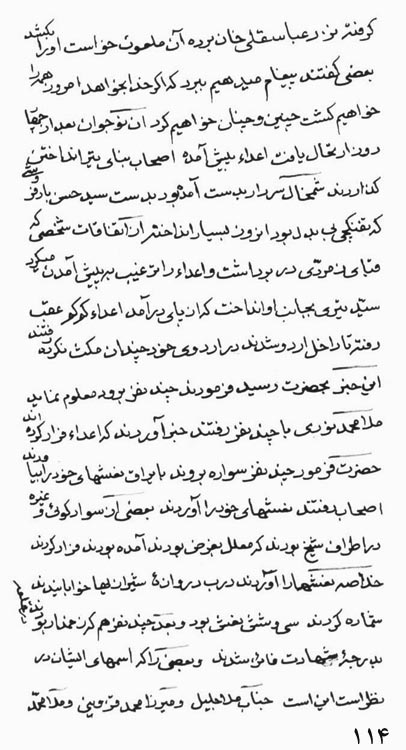 گرفته نزد عباسقلی خان برده آن ملعون خواست او را بکشد
بعضی گفتند پیغام میدهیم ببرد که اگر خدا بخواهد امروز همه را
خواهیم کشت چنین و چنان خواهیم کرد آن نوجوان بعد از چهار
روز ارتحال یافت اعداء پیش آمده اصحاب بنای تیر انداختن
گذاردند شمخال سردار بدست آمده بود بدست سید حسن
که تفنگچی بی بدل بود ایزون بسیار انداختند از اتفاقات شخصی که
قبای زمردی در بر داشت و اعداء را ترغیب به پیش آمدن میکرد
سید تیری بجانب او انداخت که از پای درآمد اعداء کوکو عقب
رفته تا داخل اردو شدند در اردوی خود چندان مکث نکرده رفتند
این خبر بحضرت رسید فرمودند چند نفر برود معلوم نماید
ملا محمد نوری با چند نفر رفتند خبر آوردند که اعداء فرار کرده اند
حضرت فرمود چند نفر سواره بروند با یراق نعشهای خود را بیاورند
اصحاب رفتند نعشهای خود را آوردند بعضی از سوار کوفی و غیره
در اطراف شیخ بودند که معلل بغرض بودند آمده بودند فرار کردند
خلاصه نعشها را آوردند درب دروازهٔ شیران لها خوابانیدند
شماره کردند سی و شش نعش بود و بعد چند نفر هم که زخمدار بودند در قلعه
بدرجهٔ شهادت فائز شدند و بعضی را که اسمهای ایشان در
نظر است این است جناب ملا جلیل و میرزا محمد قزوینی و ملا محمد
۱۱۴